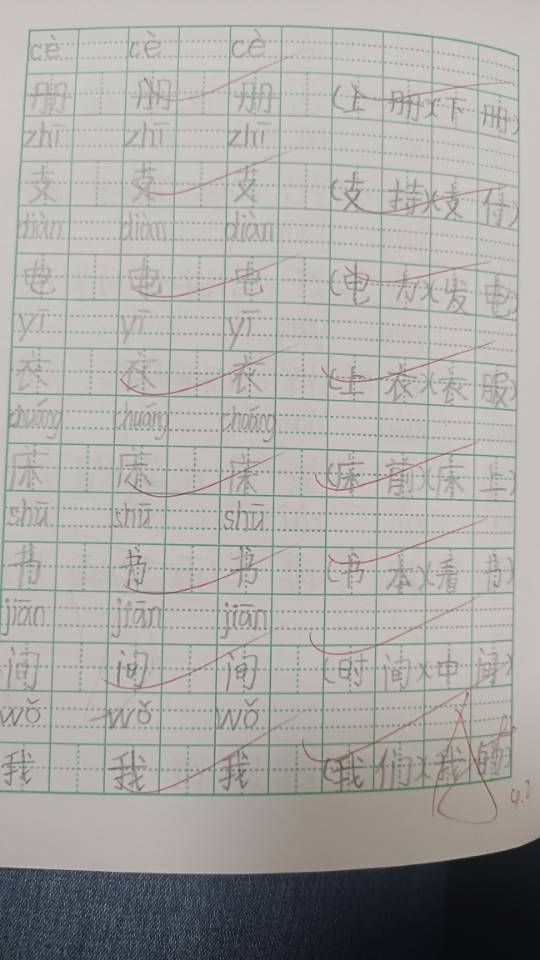 cè cè cè
册 册 册 (上册)(下册)
zhī zhī zhī
支 支 支 (支持)(支付)
diàn diàn diàn
电 电 电 (电力)(发电)
yī yī yī
衣 衣 衣 (上衣)(衣服)
chuáng chuáng chuáng
床 床 床 (床前)(床上)
shū shū shū
书 书 书 (书本)(看书)
jiān jiān jiān
间 间 间 (时间)(中间)
wǒ wǒ wǒ
我 我 我 (我们)(我的)